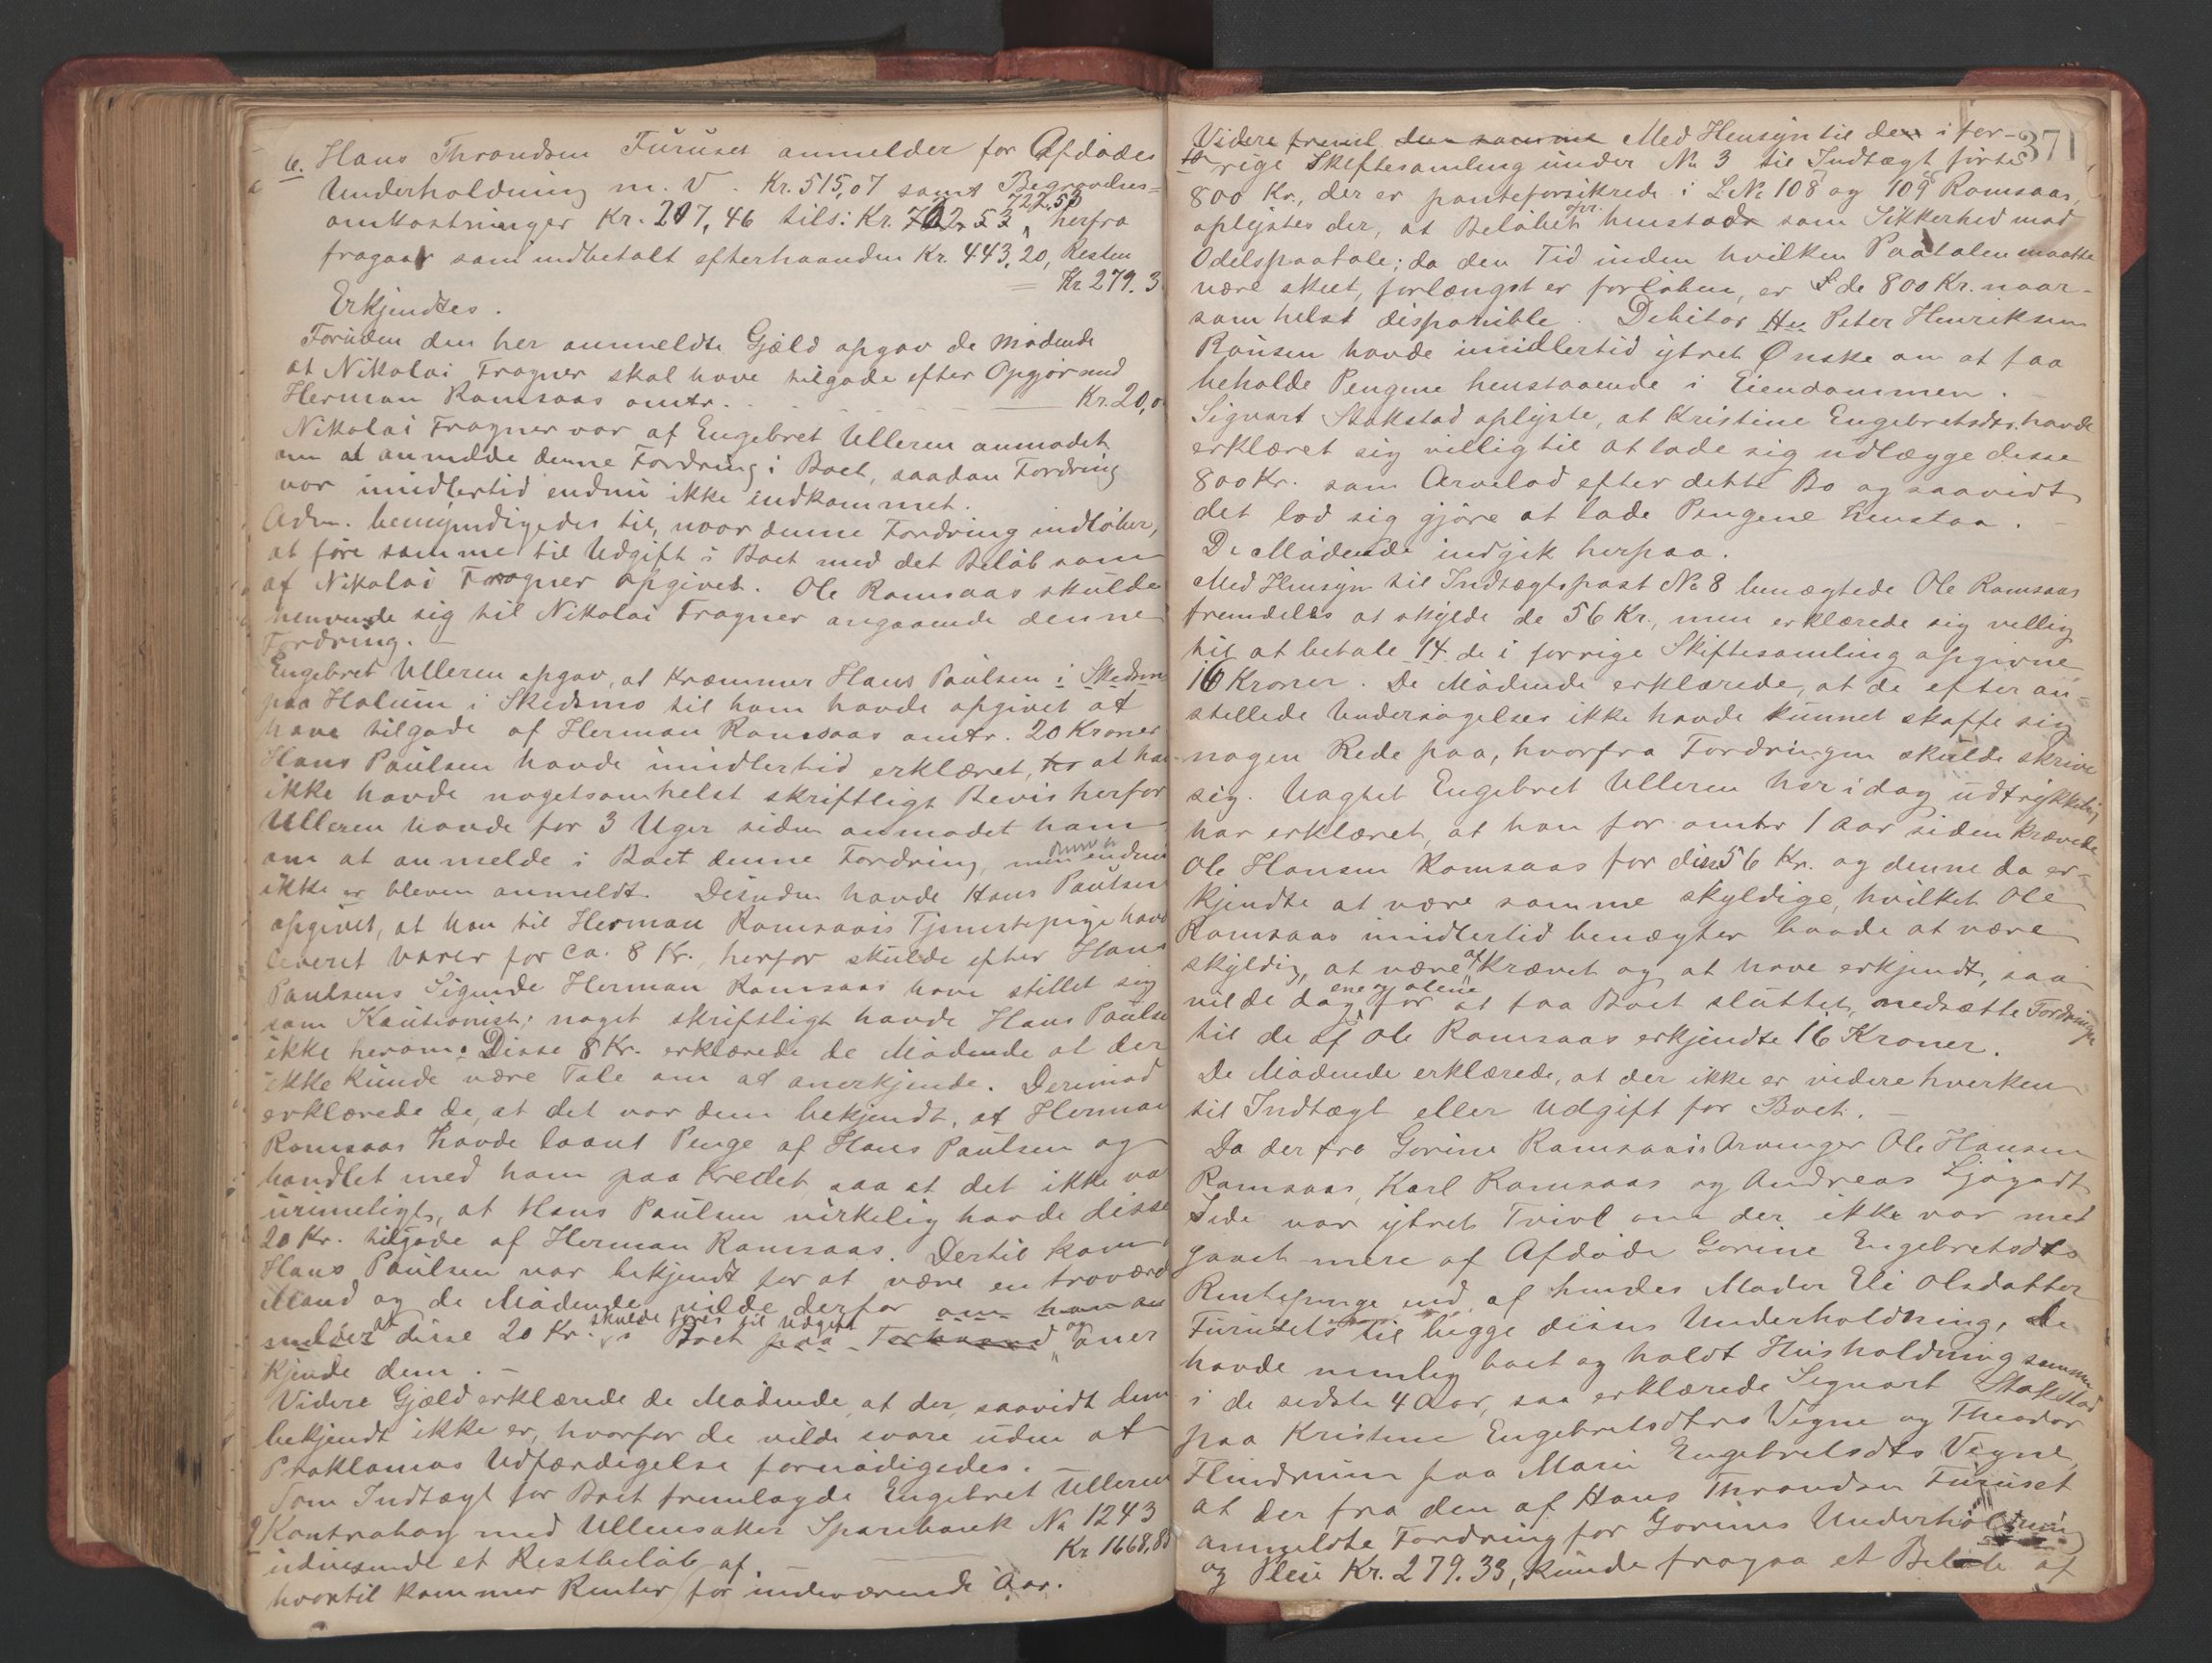 6. Hans Throndsen Furuset anmelder for Afdødes
Underholdning m. V. Kr. 515,07 samt Begravelses-
omkostninger Kr. 207,46 tils: Kr. 702,53 722.53 herfra
fragaar som indbetalt efterhaanden Kr. 443,20, Resten
Kr 279.3
Erkjendtes.
Foruden den her anmeldte Gjæld opgav de Mødende
at Nikolai Fragner skal have tilgode efter Opgjør med
Herman Ramsaas omtr. Kr. 20,0
Nikolai Fragner var af Engebret Ulleren anmodet
om at anmelde denne Fordring i Boet, saadan Fordring
var imidlertid endnu ikke indkommet.
Adm. bemyndigedes til, naar denne Fordring indløber,
at føre samme til Udgift i Boet med det Beløb som
af Nikolai Fragner opgivet. Ole Ramsaas skulde
henvende sig til Nikolai Fragner angaaende denne
Fordring.
Engebret Ulleren opgav, at Kræmmer Hans Paulsen i Skedsm
paa Holum i Skedsmo til ham havde opgivet at
have tilgode af Herman Ramsaas omtr. 20 Kroner
Hans Paulsen havde imidlertid erklæret, at han
ikke havde nogetsomhelst skriftligt Bevis herfor
Ulleren havde for 3 Uger siden anmodet ham
om at anmelde i Boet denne Fordring, men endnu
ikke er bleven anmeldt. Desuden havde Hans Paulsen
opgivet, at han til Herman Ramsaas's Tjenestepige havde
leveret Varer for ca. 8 Kr., herfor skulde efter Hans
Paulsens Sigende Herman Ramsaas have stillet sig
som Kautionist; noget skriftligt havde Hans Paulse
ikke herom. Disse 8 Kr. erklærede de Mødende at der
ikke kunde være Tale om at anerkjende. Derimod
erklærede de, at det var dem bekjendt, at Herman
Ramsaas havde laant Penge af Hans Paulsen og
handlet med ham paa Kredit saa at det ikke va
urimeligt, at Hans Paulsen virkelig havde disse
20 Kr. tilgode af Herman Ramsaas. Dertil kom
Hans Paulsen var bekjendt for at være en troværd
Mand og de Mødende vilde derfor om han an
melder at disse 20 Kr. skulde føres til Udgift i Boet paa Forhaand og aner
kjende dem. –
Videre Gjæld erklærede de Mødende at der, saavidt dem
bekjendt ikke er, hvorfor de vilde svare uden at
Proklamas Udfærdigelse fornødigedes. –
Som Indtægt for Boet fremlagde Engebret Ulleren
9 Kontrabog med Ullensaker Sparebank No 1243
udvisende et Restbeløb af Kr 1668,80
hvortil kommer Renter for indeværende Aar.
371
Videre fremk. den samme Med Hensyn til den i for-
rige Skiftesamling under No 3 til Indtægt førte
800 Kr., der er panteforsikrede i LNo 108 og 109 Ramsaas,
oplystes der, at Beløbet opr. henstode som Sikkerhed mod
Odelspaatale; da den Tid inden hvilken Paatalen maatte
være skeet, forlængst er forløben, er de 800 Kr. naar-
somhelst disponible. Debitor Peter Henriksen
Rausen havde imidlertid ytret Ønske om at faa
beholde Pengene henstaaende i Eiendommen.
Sigvart Stokstad oplyste, at Kristine Engebretsdtr. havde
erklæret sig villig til at lade sig udlægge disse
800 Kr. som Arvelod efter dette Bo og saavidt
det lod sig gjøre at lade Pengene henstaa. –
De Mødende indgik herpaa.
Med Hensyn til Indtægtspost No 8 benægtede Ole Ramsaas
fremdeles at skylde de 56 Kr., men erklærede sig villig
til at betale 14 de i forrige Skiftesamling opgivne
16 Kroner. De Mødende erklærede, at de efter an-
stillede Undersøgelser ikke havde kunnet skaffe sig
nogen Rede paa, hvorfra Fordringen skulde skrive
sig. Uagtet Engebret Ulleren her i dag udtrykkelig
har erklæret, at han for omtr 1 Aar siden krævede
Ole Hansen Ramsaas for disse 56 Kr. og denne da er-
kjendte at være samme skyldige, hvilket Ole
Ramsaas imidlertid benægter baade at være
skyldig, at være af krævet og at have erkjendt, saa
vilde dog ene og alene for at faa Boet sluttet, nedsætte Fordringen
til de af Ole Ramsaas erkjendte 16 Kroner.
De Mødende erklærede, at der ikke er videre hverken
til Indtægt eller Udgift for Boet. –
Da der fra Gorine Ramsaas's Arvinger Ole Hansen
Ramsaas, Karl Ramsaas og Andreas Ljøgodt
Side var ytret Tvivl om der ikke var med
gaaet mere af Afdøde Gorine Engebretsdtrs
Rentepenge end af hendes Moder Eli Olsdatter
Furusets til begge disses Underholdning, de
havde nemlig boet og holdt Husholdning sammen
i de sidste 4 Aar, saa erklærede Sigvart Stokstad
paa Kristine Engebretsdtrs Vegne og Theodor
Flindrum paa Maren Engebretsdtrs Vegne,
at der fra den af Hans Throndsen Furuset
anmeldte Fordring for Gorines Underholdning
og Pleie Kr. 279.33, kunde fragaa et Beløb af